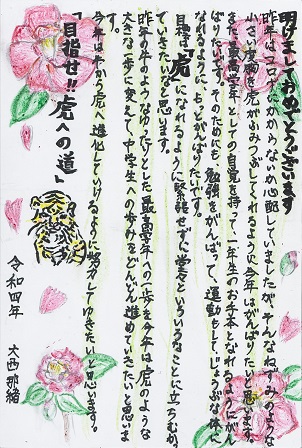 明けましておめでとうございます
昨年はコロナにかからないか心配していましたが、そんなねずみのような
小さい度胸を虎がふみつぶしてくれるように今年はがんばりたいと思います。
また、最高学年としての自覚を持って一年生のお手本となれるようにが
ばりたいです。そのためにも、勉強をがんばって、運動もしてじょうぶな体に
なれるように、もっとがんばりたいです。
目標は「虎」になれるように緊張せずに堂々といろいろなことに立ちむか
ていきたいなと思います。
昨年の牛のようなゆったりとした最高学年への一歩を今年は虎のような
大きな一歩に変えて、中学生への歩みをどんどん進めていきたいと思いま
す。
今年は牛から虎へ進化していけるように努力してゆきたいと思います。
「目指せ!!虎への道」
令和四年
大西那緒